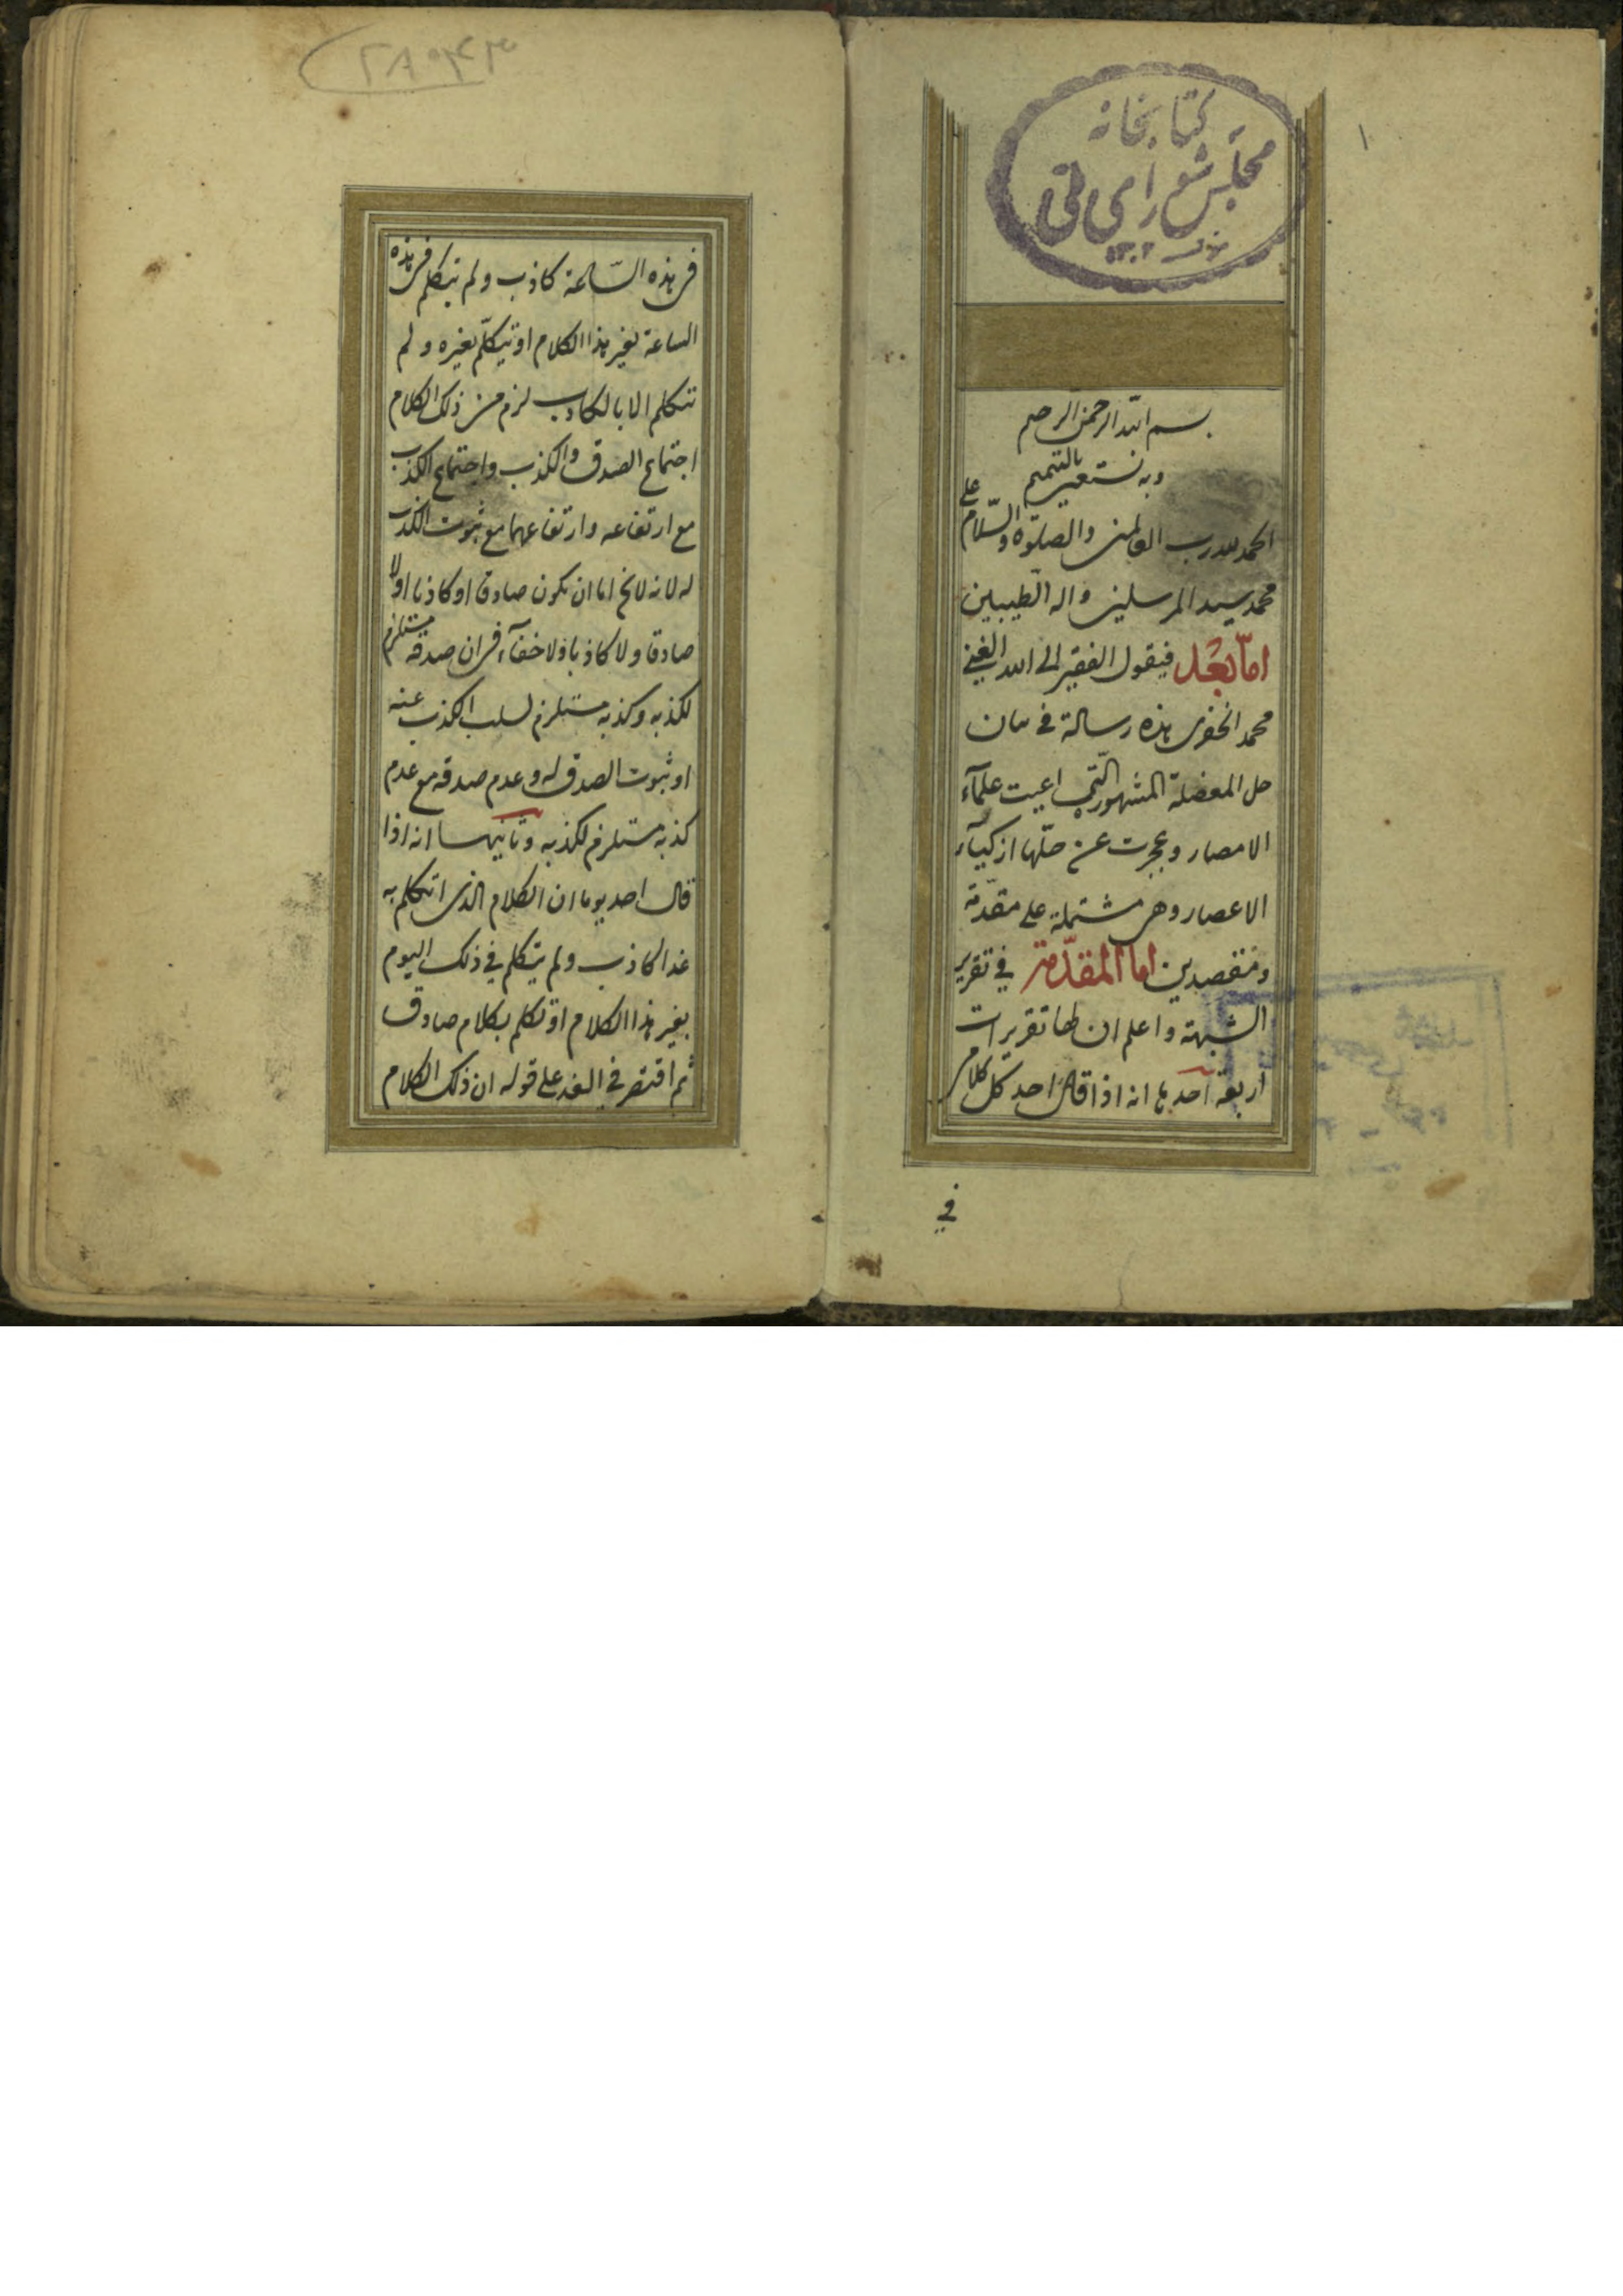 كتابخانه
مجلس شورای ملی
۱۳۰۲
۱
بسم الله الرحمن الرحيم
وبه نستعين بالتتميم
الحمد لله رب العالمين والصلوة والسلام على
محمد سيد المرسلين واله الطيبين
اما بعد فيقول الفقير الى الله الغني
محمد الخفرى هذه رسالة في بيان
حل المعضلة المشهورة التي اعيت علمآء
الامصار وعجزت عن حلها ازكيآء
الاعصار وهى مشتملة على مقدّمة
ومقصدين اما المقدّمة في تقرير
الشبهة واعلم ان لها تقريرات
اربعة احدیها انه اذا قال احد كل كلامى
في
۲۸۰۴۳
فى هذه السّاعة كاذب ولم يتكلم فى هذه
الساعة بغير هذا الكلام او يتكلّم بغيره ولم
يتكلم الا بالكاذب لزم من ذلك الكلام
اجتماع الصدق والكذب واجتماع الكذب
مع ارتفاعه وارتفاعهما مع ثبوت الكذب
له لانه لا يخ اما ان يكون صادقا او كاذبا او لا
صادقا ولا كاذبا ولا خفآء فى ان صدقه مستلزم
لكذبه وكذبه مستلزم لسلب الكذب عنه
او ثبوت الصدق له وعدم صدقه مع عدم
كذبه مستلزم لكذبه وثانيهـا انه اذا
قال احد يوما ان الكلام الذى اتكلم به
غدا كاذب ولم يتكلم في ذلك اليوم
بغير هذا الكلام او تكلم بكلام صادق
ثم اقتصر في الغد على قوله ان ذلك الكلام